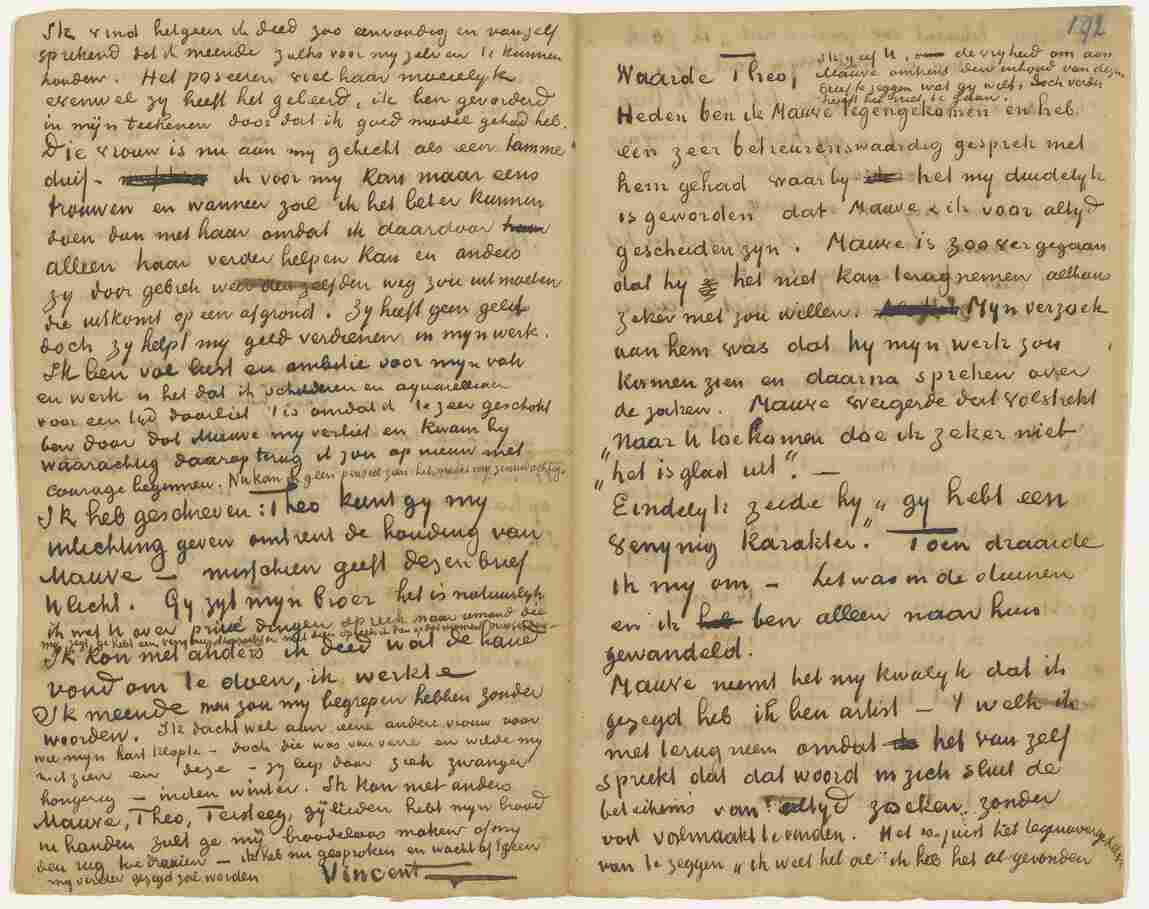 Ik vind hetgeen ik deed zoo eenvoudig en van zelf
sprekend dat ik meende zulks voor mij zelven te kunnen
houden. Het poseeren viel haar moeielyk
evenwel zy heeft het geleerd, ik ben gevorderd
in mijn teekenen door dat ik goed model gehad heb.
Die vrouw is nu aan my gehecht als een tamme
duif – ik voor my kan maar eens
trouwen en wanneer zoil ik het beter kunnen
doen dan met haar omdat ik daardoor
alleen haar verder helpen kan en anders
zy door gebrek weer den zelfden weg zou uit moeten
die uitkomt op een afgrond. Zy heeft geen geld
doch zy helpt my geld verdienen in mynwerk.
Ik ben vol lust en ambitie voor myn vak
en werk is het dat ik schilderen en aquarelleeren
voor een tyd daarliet 't is omdat ik te zeer geschokt
ben door dat Mauve my verliet en kwam hy
waarachtig daarop terug ik zou op nieuw met
courage beginnen. Nu kan ik geen penseel zien het maakt my zenuwachtig.
Ik heb geschreven: Theo kunt gy my
inlichting geven omtrent de houding van
Mauve – misschien geeft dezen brief
U licht. Gy zyt myn broer het is natuurlyk
ik met U over privé dingen spreek maar iemand die
my zegt, ge hebt een venynig karakter met dien spreek ik dan op dat moment
Ik kon niet anders ik deed wat de hand
vond om te doen, ik werkte
Ik meende men zou my begrepen hebben zonder
woorden. Ik dacht wel aan eene andere vrouw voor
wie mijn hart klopte – doch die was van verre en wilde my
niet zien en deze – zy liep daar ziek zwanger
hongerig – in den winter. Ik kon niet anders
Mauve, Theo, Tersteeg, gijlieden hebt myn brood
in handen zult ge mij broodeloos maken of my
den rug toe draaien – ik heb nu gesproken en wacht af 'tgeen
my verder gezegd zal worden Vincent
192
Waarde Theo,
ik geef U de vryheid om aan
Mauve omtrent den inhoud van dezen
brief te zeggen wat gy wilt, doch verder
hoeft het niet te gaan.
Heden ben ik Mauve tegengekomen en heb
een zeer betreurenswaardig gesprek met
hem gehad waarby het my duidelyk
is geworden dat Mauve & ik voor altyd
gescheiden zyn. Mauve is zoo ver gegaan
dat hy het niet kan terugnemen althans
zeker niet zou willen. Myn verzoek
aan hem was dat hy myn werk zou
komen zien en daarna spreken over
de zaken. Mauve weigerde dat volstrekt
„Naar U toe komen doe ik zeker niet
„het is glad uit“. –
Eindelyk zeide hy „gy hebt een
venynig karakter.“ Toen draaide
ik my om – het was in de duinen
en ik ben alleen naar huis
gewandeld.
Mauve neemt het my kwalyk dat ik
gezegd heb ik ben artist – 't welk ik
niet terug neem omdat het van zelf
spreekt dat dat woord in zich sluit de
beteekenis van altyd zoeken zonder
ooit volmaakt te vinden. Het is juist het tegenovergestelde
van te zeggen „ik weet het al ik heb het al gevonden